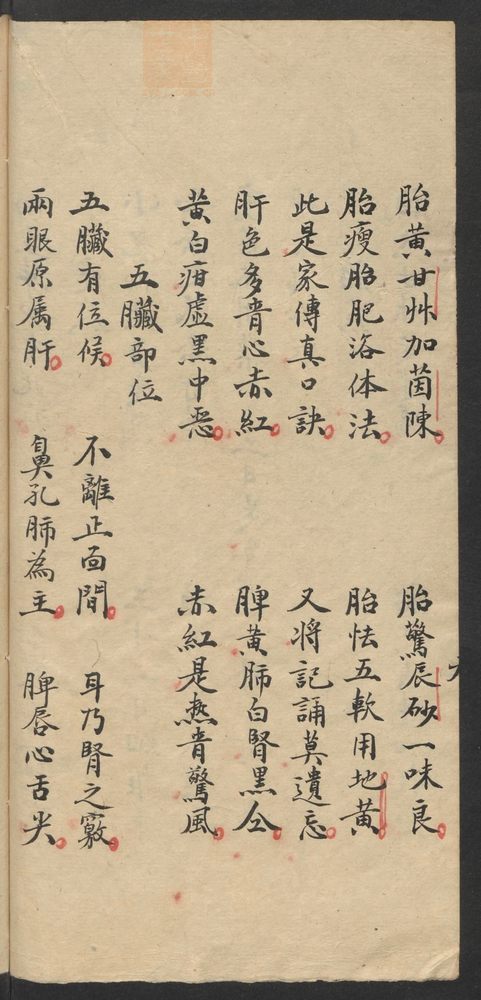 胎黄甘艸加茵陳 胎驚辰砂一味良
胎瘦胎肥浴体法 胎怯五軟用地黄
此是家傳真口訣 又將記誦莫遺忘
肝色多青心赤紅 脾黄肺白腎黑仝
黄白疳虛黑中惡 赤紅是热青驚風
五臟部位
五臟有位候 不離正面間 耳乃腎之竅
兩眼原属肝 鼻孔肺為主 脾唇心舌尖